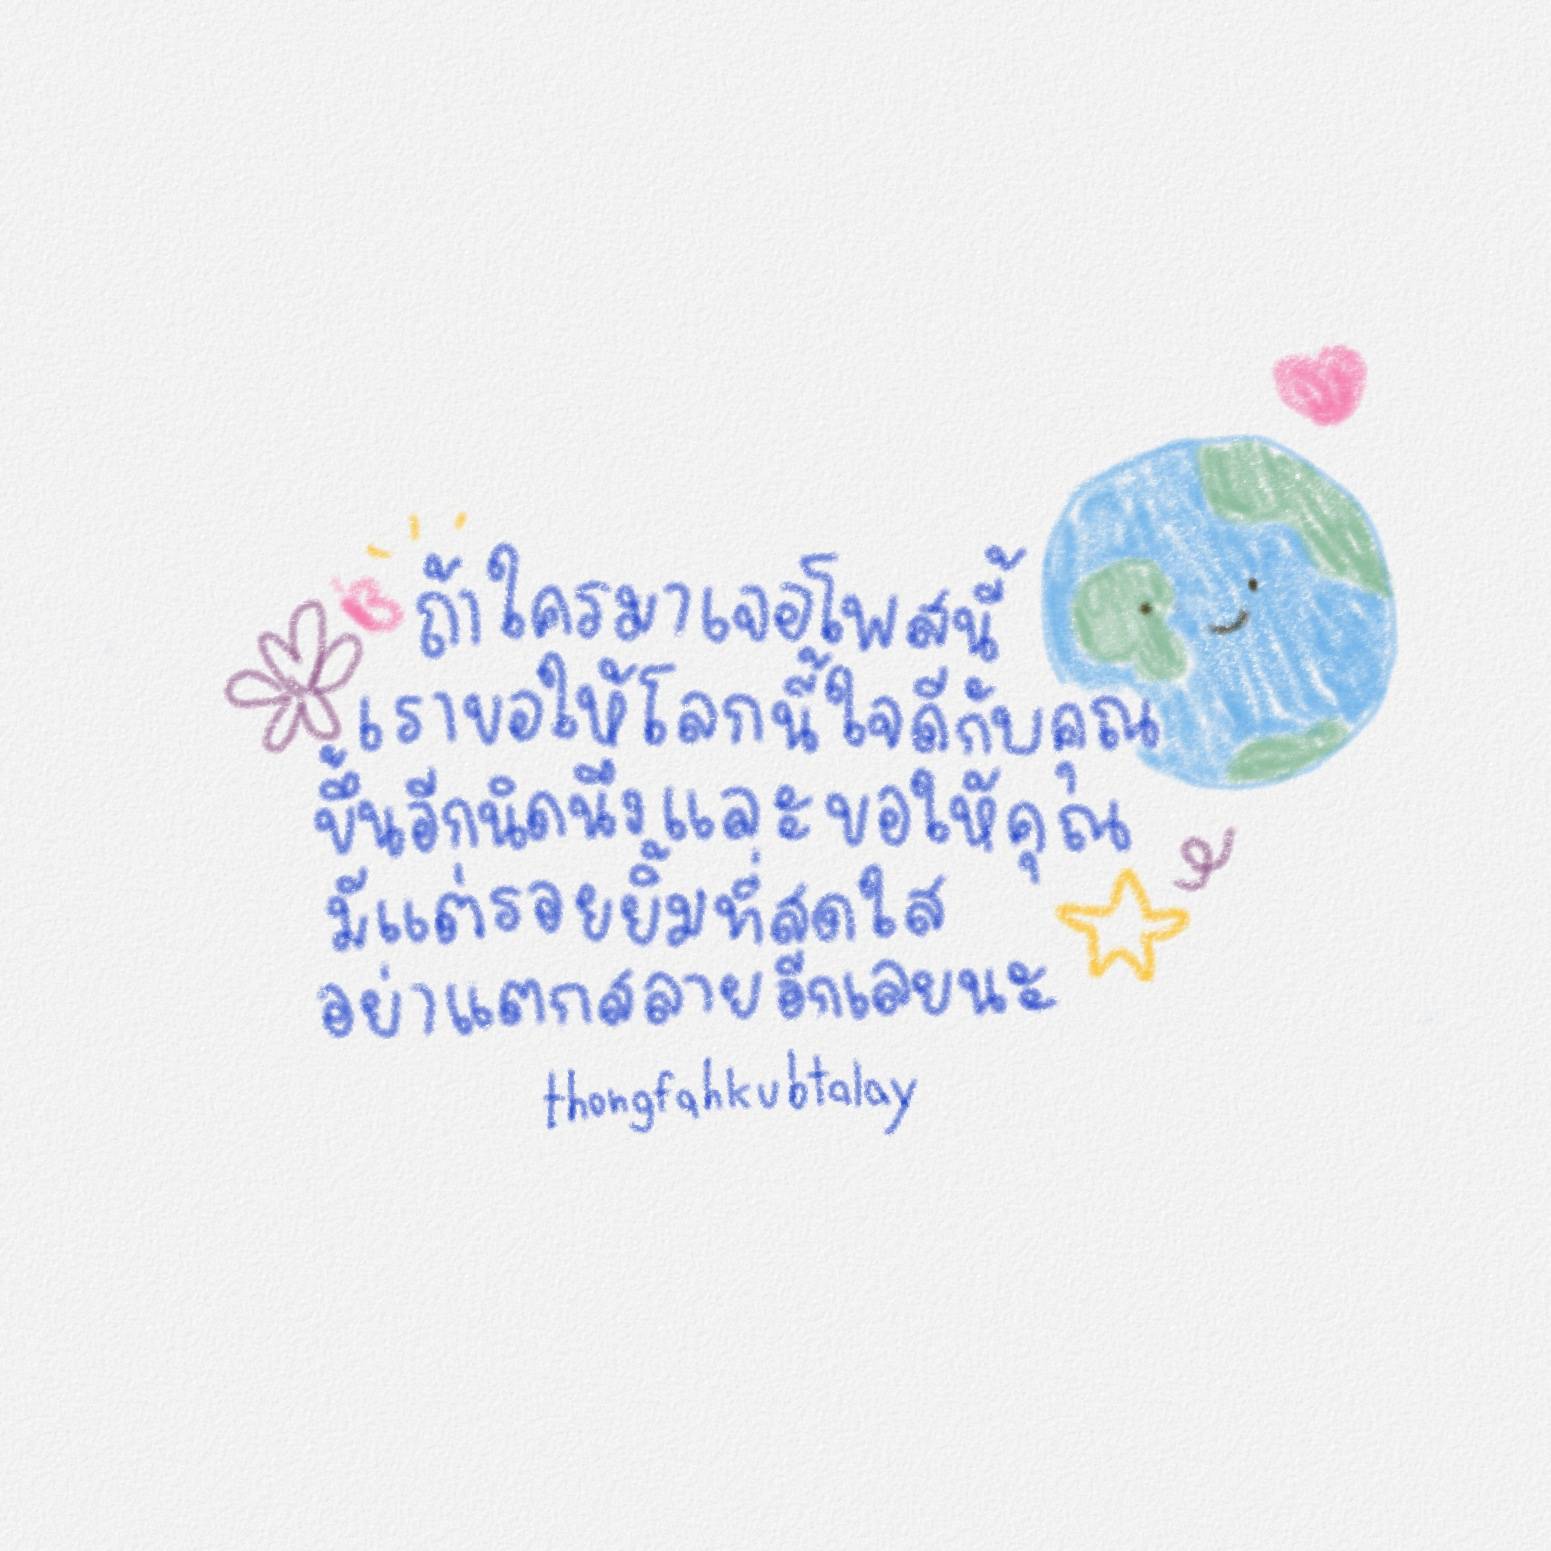 ถ้าใครมาเจอโพสนี้
เราขอให้โลกนี้ใจดีกับคุณ
ขึ้นอีกนิดนึงและขอให้คุณ
มีแต่รอยยิ้มที่สดใส
อย่าแตกสลายอีกเลยนะ
thongfahkubtalay